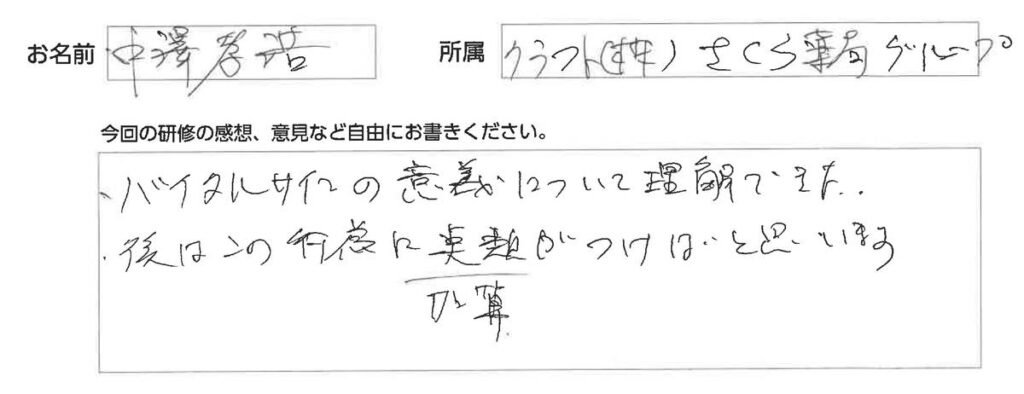 お名前 中澤孝浩 所属 クラフト(株)さくら薬局グループ
今回の研修の感想、意見など自由にお書きください。
・バイタルサインの意義について理解できた。
・後はこの行為に がつけばと思います
加算